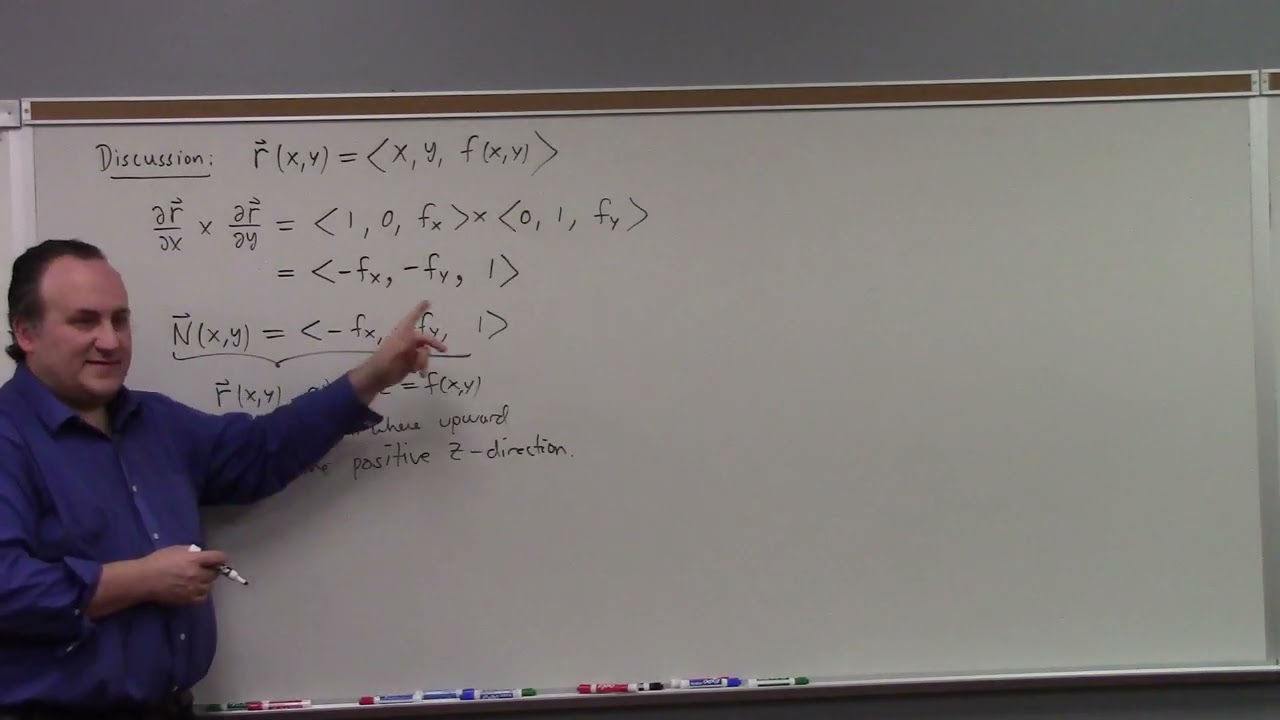 Discussion: r⃗(x,y) = <x, y, f(x,y)>
∂r⃗/∂x × ∂r⃗/∂y = <1, 0, fₓ> × <0, 1, f_y>
= <-fₓ, -f_y, 1>
N⃗(x,y) = <-fₓ, f_y, 1>
r⃗(x,y) = f(x,y)
where upward
positive z-direction.